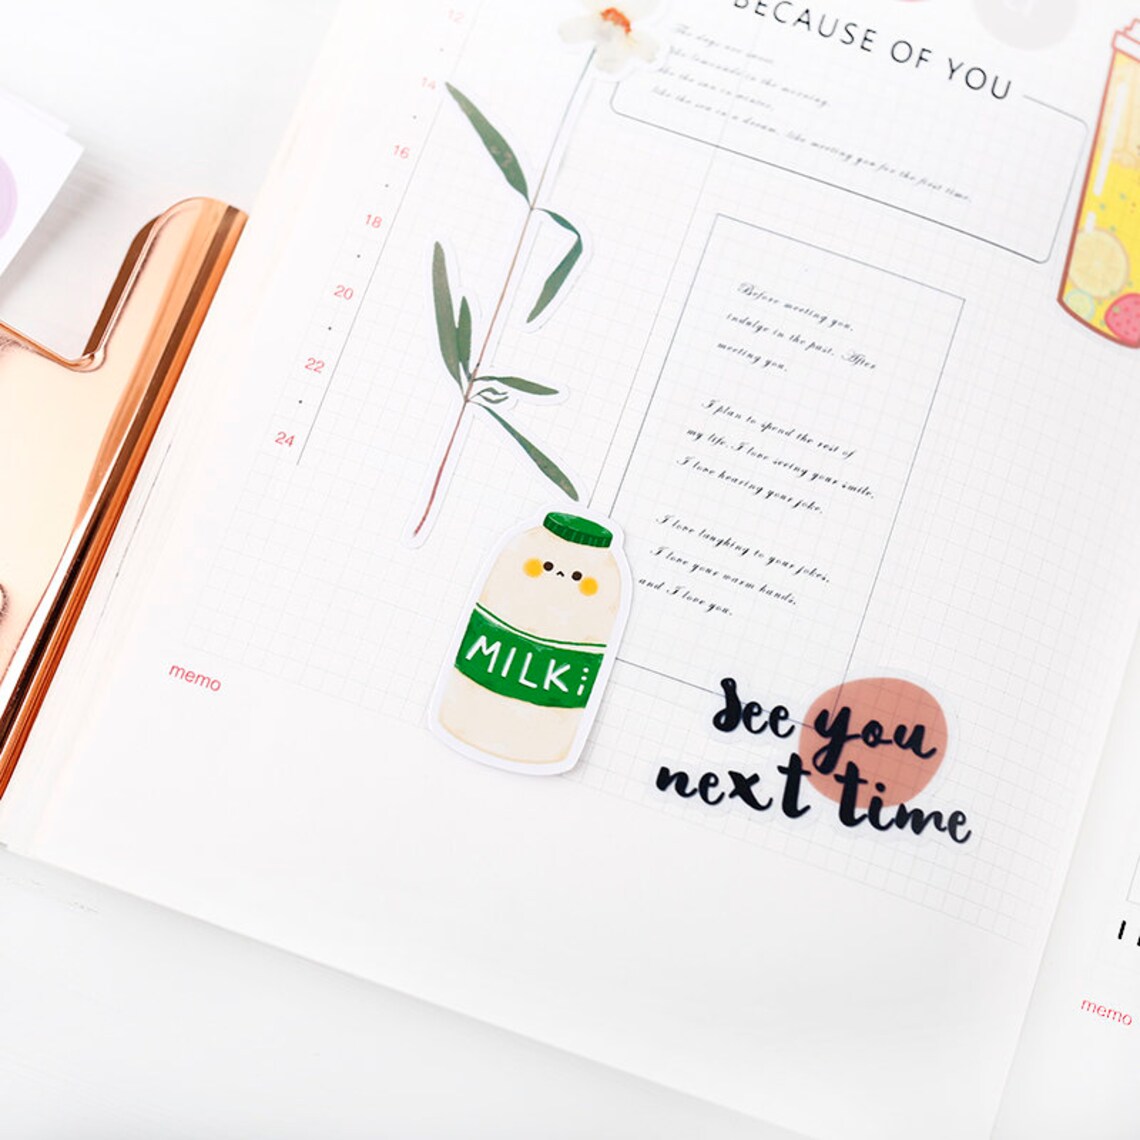 BECAUSE OF YOU
The days are sweet,
like lemonade in the morning,
like the sun in winter,
like the sea in a dream, like meeting you for the first time.
12
14
16
18
20
22
24
Before meeting you,
indulge in the past. After
meeting you,
I plan to spend the rest of
my life. I love seeing your smile,
I love hearing your joke,
I love laughing to your jokes,
I love your warm hands,
and I love you.
MILK
memo
See you
next time
I
memo